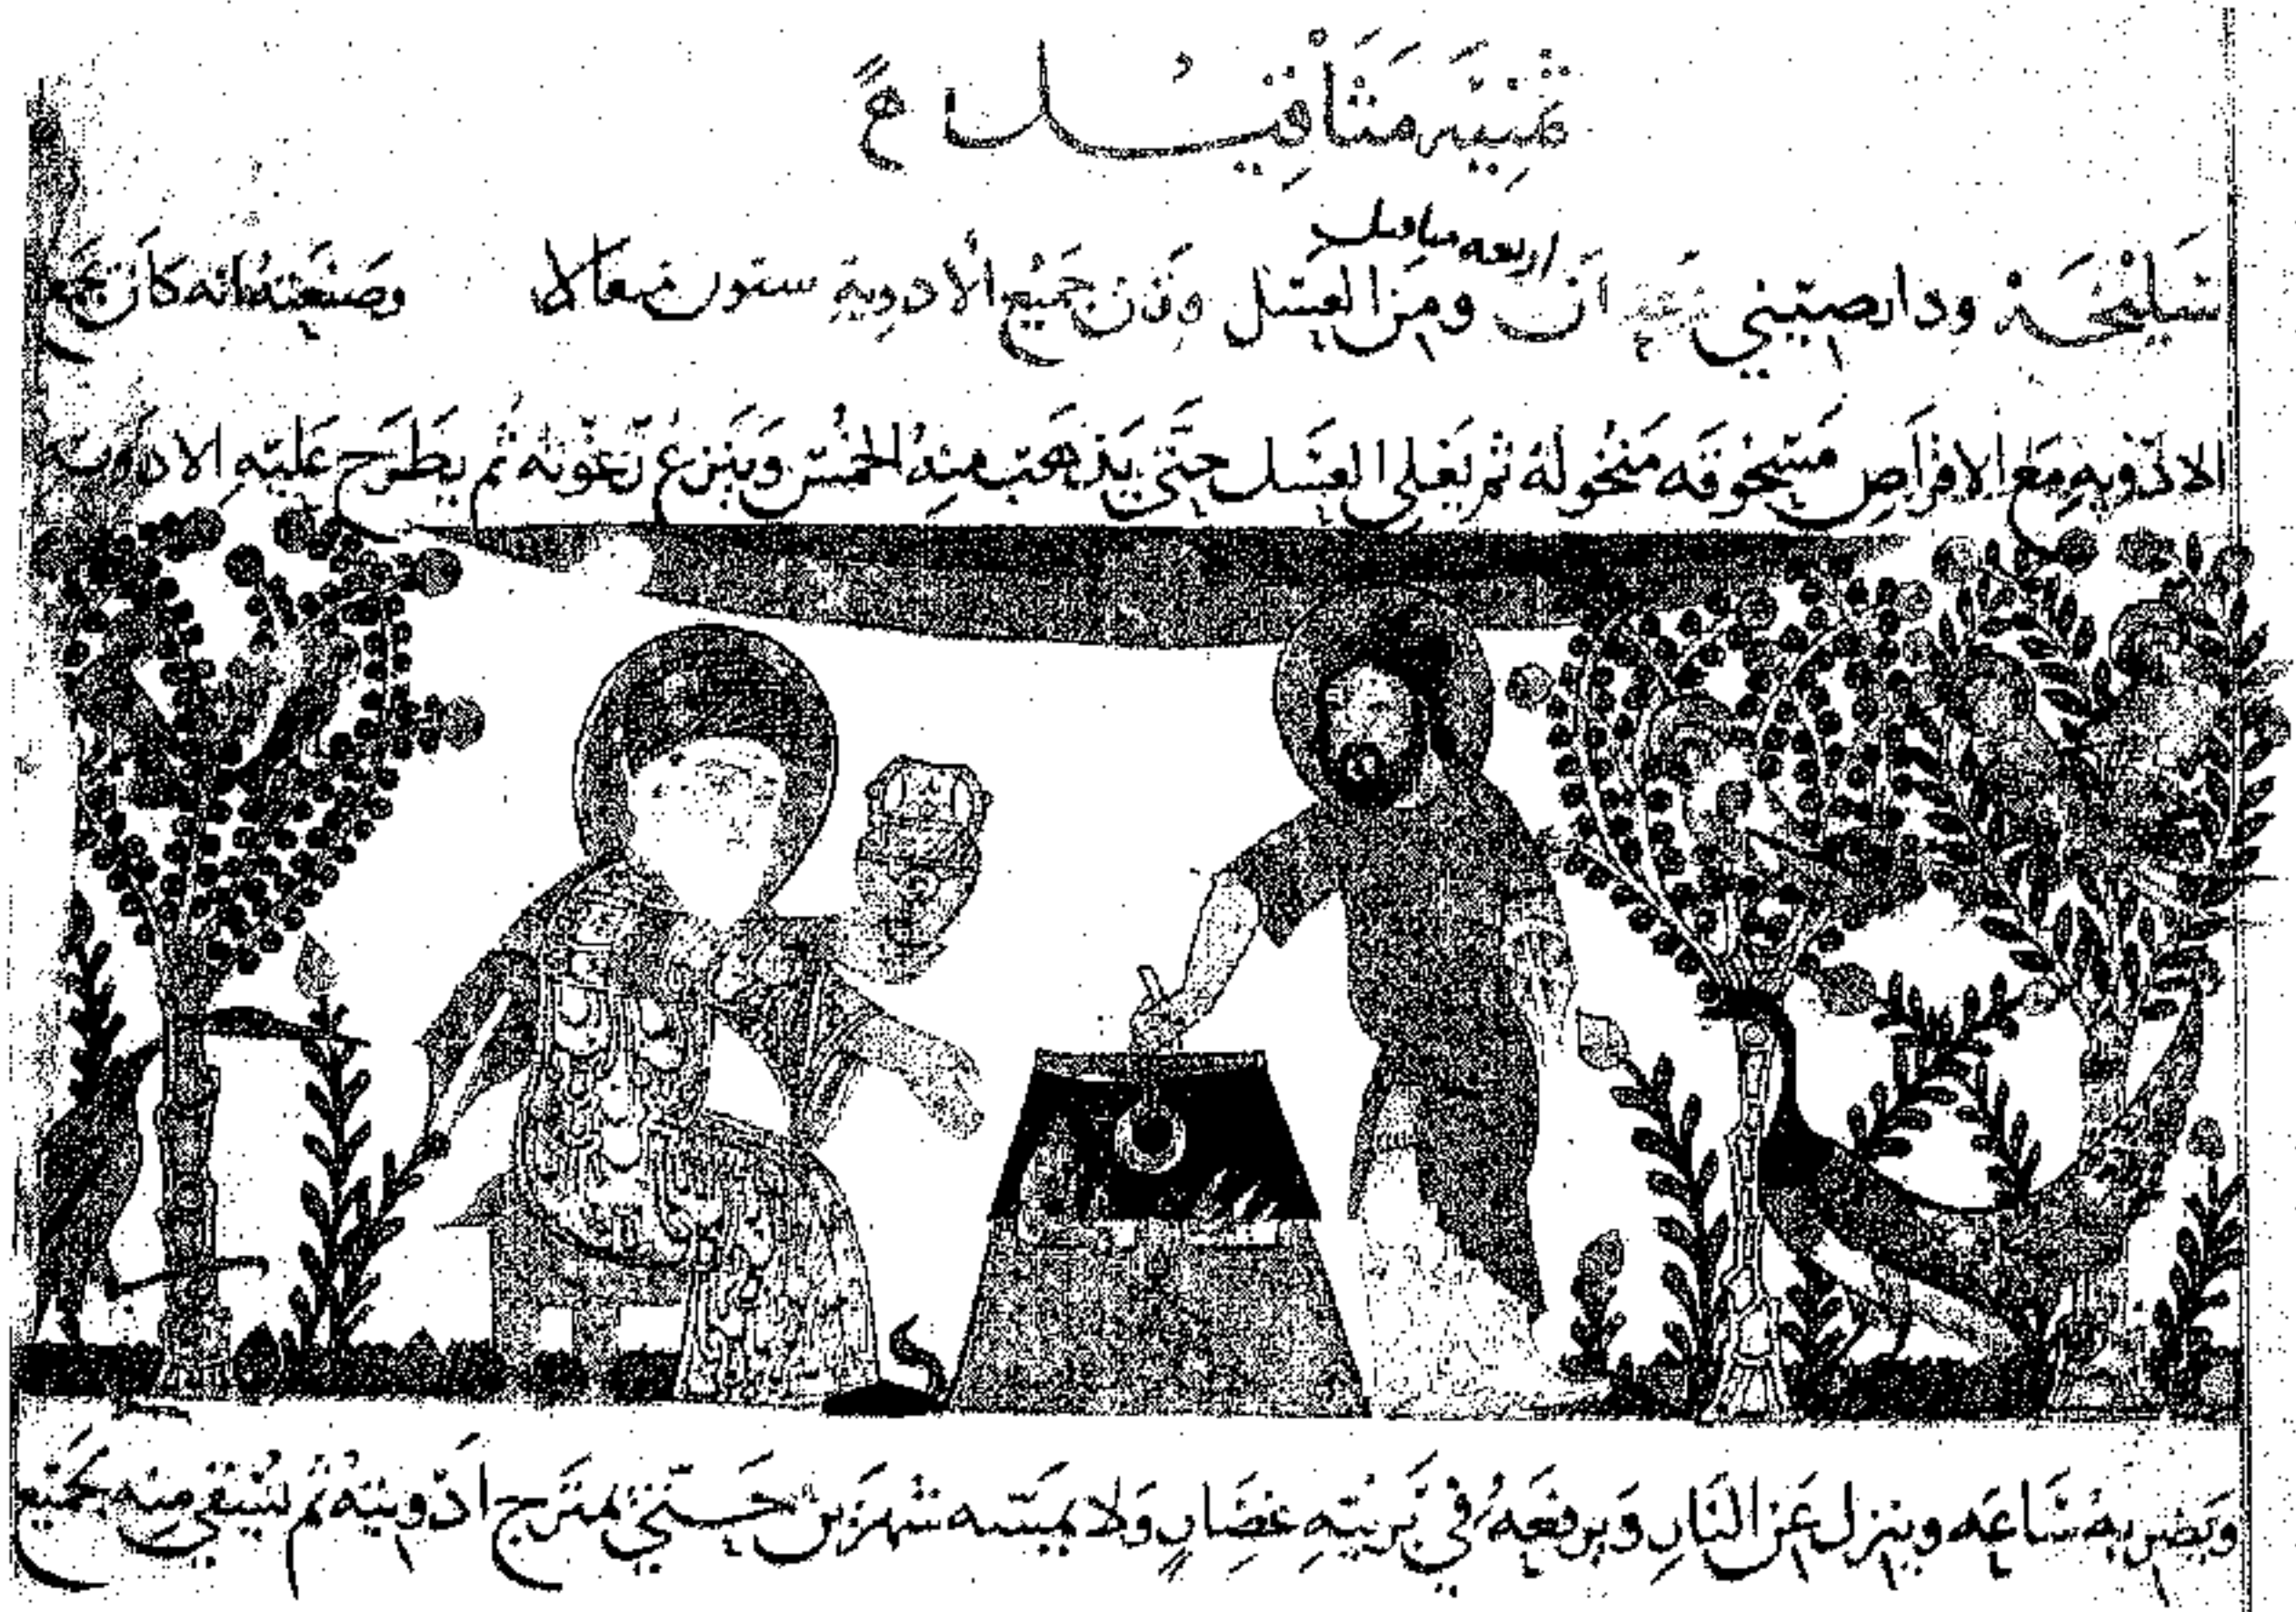 ثمنيَه مَثاقيلا
اربعه مثاقيل
سَليْخَة ودارصيني ومن العسَل وَزن جَميْع ألأدوية ستون مثقالا وصَنعَته انه كان يجمع
الادْويهِ مَع الاقراَص مَسْحُوقَه مَنخُولَهُ ثم يَغلى العَسَل حَتَّى يَذهَب منِهُ الخمُسْ وَيَنزعُ رَغوته ثُم يَطَرح عَليْهِ الادَويه
وَيضربهُ سَاعَه وينزل عَن النَارِ وَيرفعَهُ في بَرنيْهِ غضَارٍ وَلا يمَسّه شهرَين حَتى يمتَزج ادْويتهُ ثم يُسْقي منِه بجمَيْع